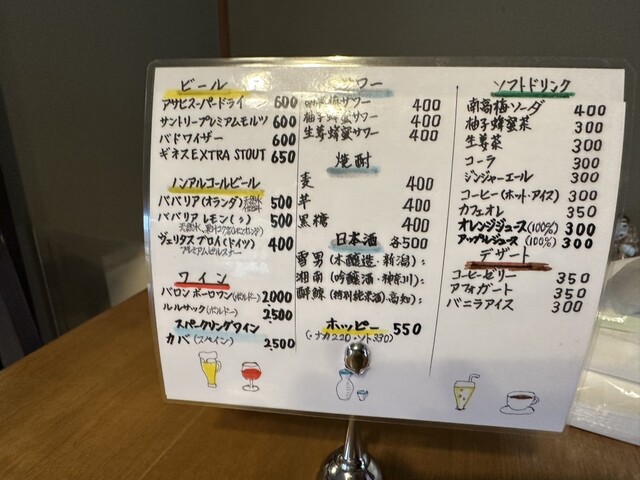 ビール
アサヒスーパードライ 600
サントリープレミアムモルツ 600
バドワイザー 600
ギネス EXTRA STOUT 650
ノンアルコールビール
ババリア(オランダ) 500
ババリアレモン(〃) 500
ヴェリタスブロイ(ドイツ) 400
プレミアムピルスナー
ワイン
バロンボーロワン(ボルドー) 2,000
ルルサック(ボルドー) 2,500
スパークリングワイン
カバ(スペイン) 2,500
サワー
南高梅サワー 400
柚子蜂蜜サワー 400
生姜蜂蜜サワー 400
焼酎
麦 400
芋 400
黒糖 400
日本酒 各500
雪男(本醸造・新潟):
湘南(吟醸酒・神奈川):
酔鯨(特別純米酒・高知):
ホッピー 550
(・ナカ220・ソト330)
ソフトドリンク
南高梅ソーダ 400
柚子蜂蜜茶 300
生姜茶 300
コーラ 300
ジンジャーエール 300
コーヒー(ホット・アイス) 300
カフェオレ 350
オレンジジュース(100%) 300
アップルジュース(100%) 300
デザート
コーヒーゼリー 350
アフォガート 350
バニラアイス 300